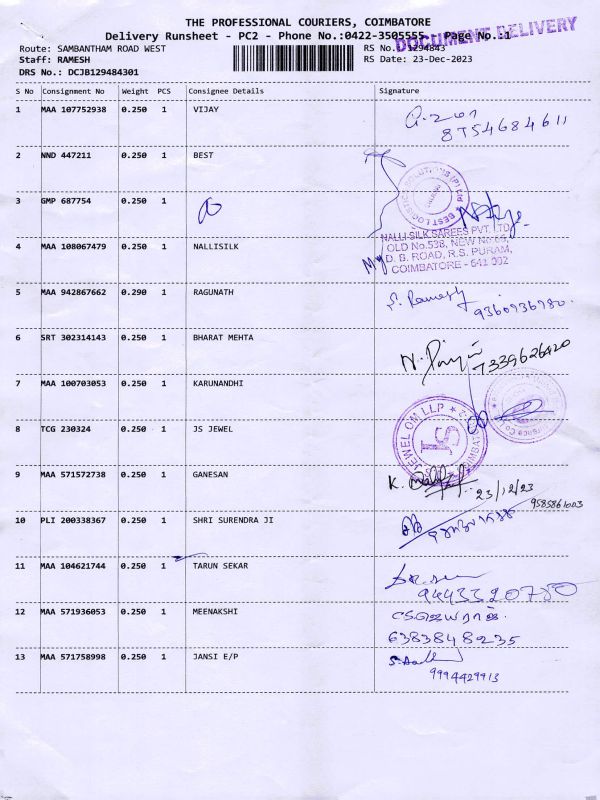 THE PROFESSIONAL COURIERS, COIMBATORE
Delivery Runsheet - PC2 - Phone No.:0422-3505555 Page No.:1
DOCUMENT DELIVERY
Route: SAMBANTHAM ROAD WEST
RS No.: 1294843
Staff: RAMESH
RS Date: 23-Dec-2023
DRS No.: DCJB129484301
S No Consignment No Weight PCS Consignee Details Signature
1 MAA 107752938 0.250 1 VIJAY
8754684611
2 NND 447211 0.250 1 BEST
3 GMP 687754 0.250 1
NALLI SILK SAREES PVT. LTD
OLD No.538, NEW No.66,
4 MAA 108067479 0.250 1 NALLISILK
D. B. ROAD, R.S. PURAM,
COIMBATORE - 641 002
5 MAA 942867662 0.290 1 RAGUNATH
S. Ramesh
9360936780.
6 SRT 302314143 0.250 1 BHARAT MEHTA
7339626420
7 MAA 100703053 0.250 1 KARUNANDHI
8 TCG 230324 0.250 1 JS JEWEL
JEWEL OM LLP
JS
9 MAA 571572738 0.250 1 GANESAN
23/12/23
9585861003
10 PLI 200338367 0.250 1 SHRI SURENDRA JI
11 MAA 104621744 0.250 1 TARUN SEKAR
9443320780
12 MAA 571936053 0.250 1 MEENAKSHI
6383848235
13 MAA 571758998 0.250 1 JANSI E/P
9994429913